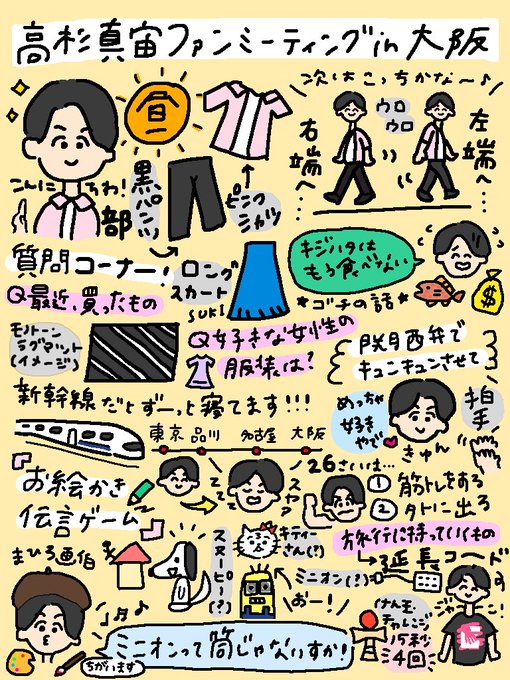 高杉真宙ファンミーティングin大阪
昼
部
こんにちわ!
黒パンツ
ピンクシャツ
次はこっちかな〜♪
ウロウロ
右端へ…
左端へ…
質問コーナー!
Q最近、買ったもの
モノトーン
ラグマット
(イメージ)
ロング
スカート
SUKI
Q好きな女性の
服装は?
キジハタは
もう食べない
*ゴチの話*
$
関西弁で
キュンキュンさせて
めっちゃ
好き
やで
きゅん
拍手
新幹線だとずーっと寝てます!!!
東京 品川 名古屋 大阪
スヤァ
お絵かき
伝言ゲーム
26さいは…
①筋トレをする
②外に出る
旅行に持っていくもの
延長コード
ジャーン!
まひろ画伯
スヌーピー(?)
キティー
さん(?)
ミニオン(?)
おー!
けん玉
チャレンジ
15秒
4回
ミニオンって筒じゃないすか!
ちがいます